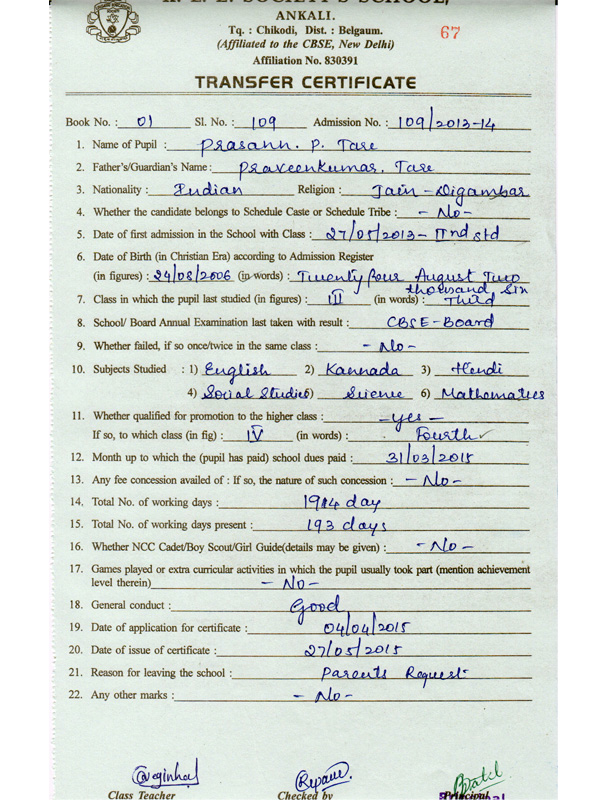 K. L. E. SOCIETY'S SCHOOL,
ANKALI.
Tq. : Chikodi, Dist. : Belgaum.
(Affiliated to the CBSE, New Delhi)
67
Affiliation No. 830391
TRANSFER CERTIFICATE
Book No. : 01 Sl. No. : 109 Admission No. : 109/2013-14
1. Name of Pupil : Prasann. P. Tare
2. Father's/Guardian's Name : Praveenkumar. Tare
3. Nationality : Indian Religion : Jain - Digambar
4. Whether the candidate belongs to Schedule Caste or Schedule Tribe : - No -
5. Date of first admission in the School with Class : 27/05/2013 - IInd std
6. Date of Birth (in Christian Era) according to Admission Register
(in figures) : 24/08/2006 (in words) : Twenty four August Two
thousand Six
7. Class in which the pupil last studied (in figures) : III (in words) : Third
8. School/ Board Annual Examination last taken with result : CBSE - Board
9. Whether failed, if so once/twice in the same class : - No -
10. Subjects Studied : 1) English 2) Kannada 3) Hendi
4) Social Studies 5) Science 6) Mathematics
11. Whether qualified for promotion to the higher class : - yes -
If so, to which class (in fig) : IV (in words) : Fourth
12. Month up to which the (pupil has paid) school dues paid : 31/03/2015
13. Any fee concession availed of : If so, the nature of such concession : - No -
14. Total No. of working days : 194 day
15. Total No. of working days present : 193 days
16. Whether NCC Cadet/Boy Scout/Girl Guide(details may be given) : - No -
17. Games played or extra curricular activities in which the pupil usually took part (mention achievement
level therein) - No -
18. General conduct : Good
19. Date of application for certificate : 04/04/2015
20. Date of issue of certificate : 27/05/2015
21. Reason for leaving the school : Parents Request
22. Any other marks : - No -
Class Teacher Checked by Principal